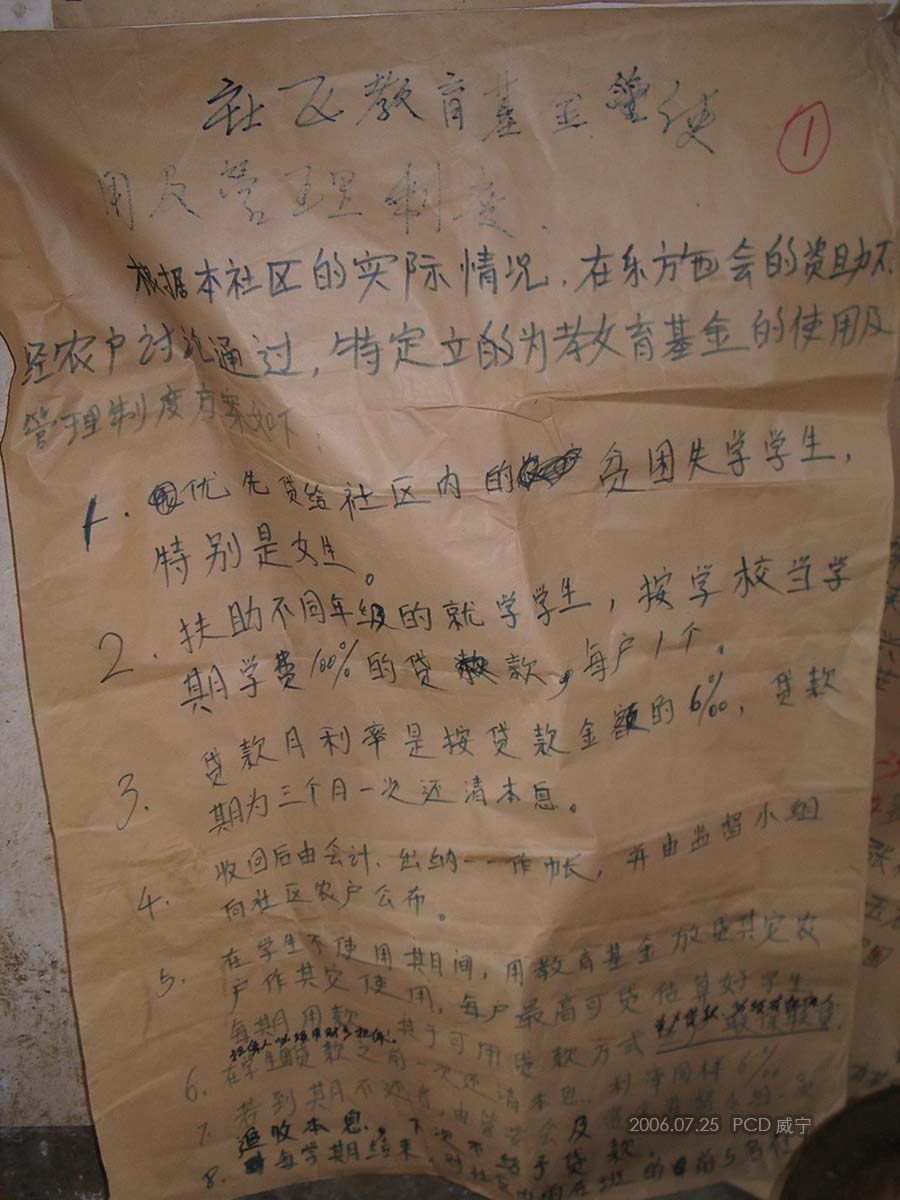 社区教育基金使
用及管理制度
①
根据本社区的实际情况.在东方西会的资助下.
经农户讨论通过,特定立的为教育基金的使用及
管理制度方案如下:
1. 优先贷给社区内的贫困失学学生,
特别是女生。
2. 扶助不同年级的就学学生,按学校当学
期学费100%的贷款,每户1个.
3. 贷款月利率是按贷款金额的6‰,贷款
期为三个月一次还清本息。
4. 收回后由会计.出纳一一作帐,并由监督小组
向社区农户公布。
5. 在学生不使用其间,用教育基金放贷其它农
户作其它使用,每户最高可贷估算好学生
每期用款
6. 在学生贷款之前一次还清本息.利率同样6‰。
7. 若到期不还者,由管委会及
追收本息.下次不给予贷款.
8. 每学期结束,
2006.07.25 PCD 威宁